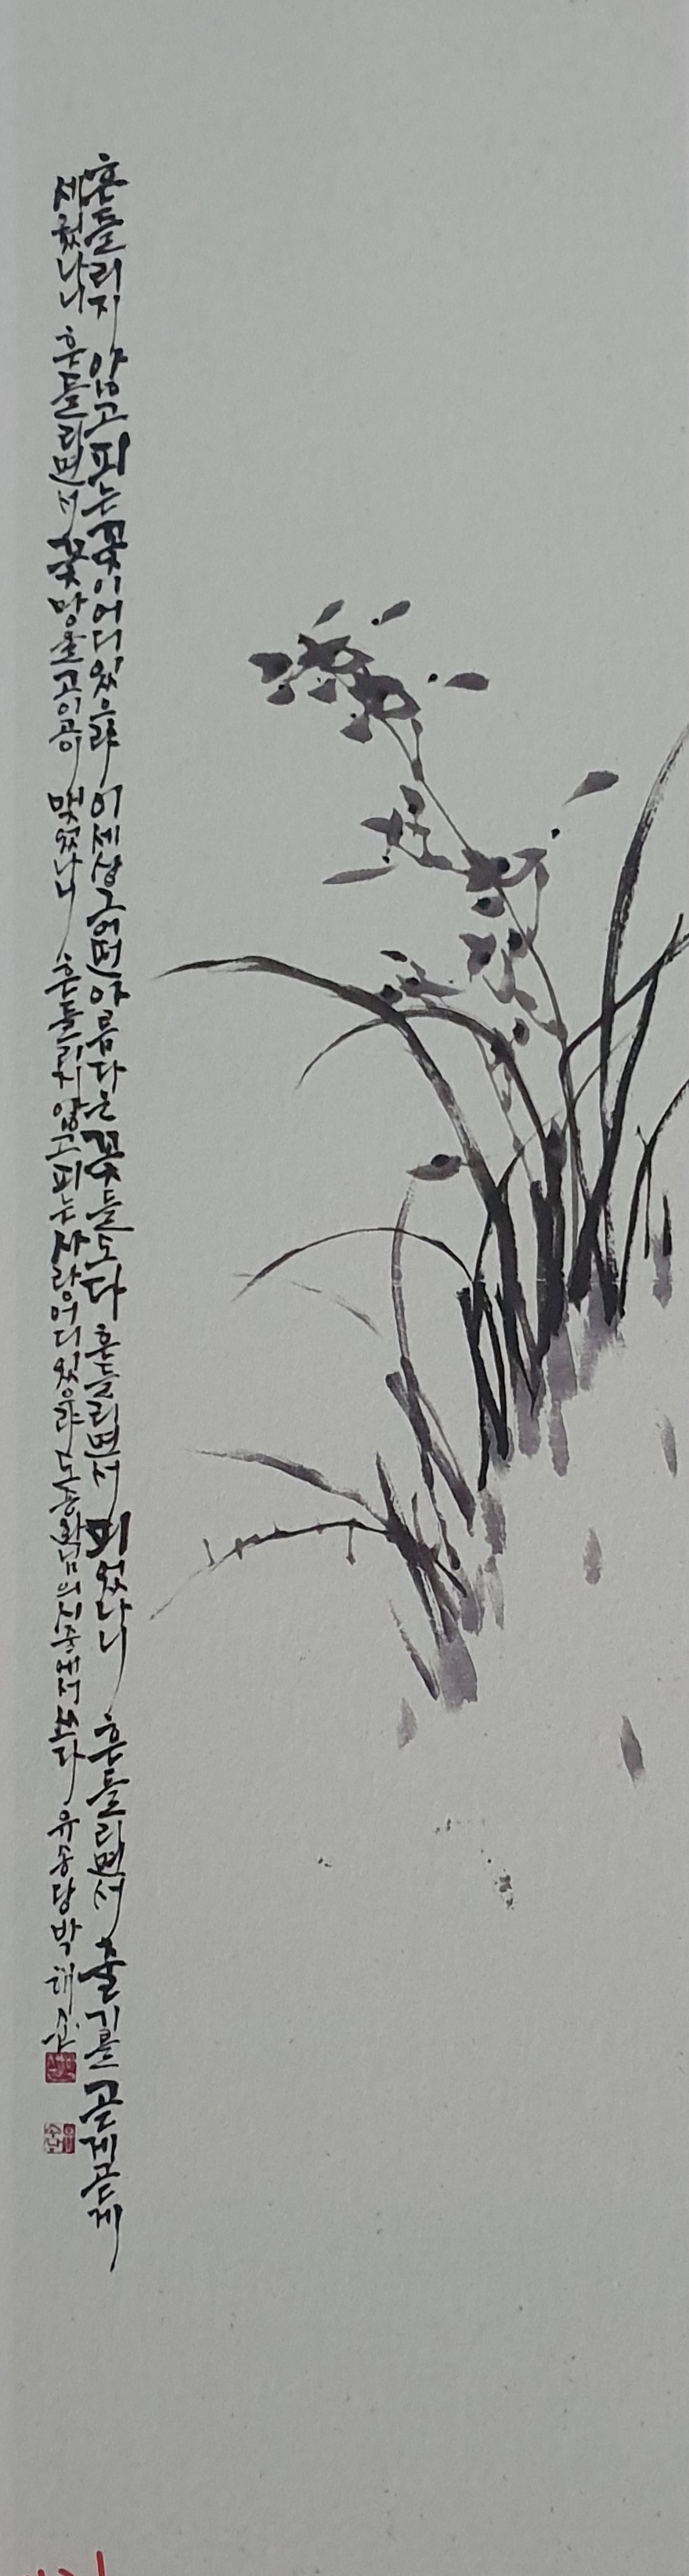 흔들리지 않고 피는 꽃이 어디 있으랴 이 세상 그 어떤 아름다운 꽃들도 다 흔들리면서 피었나니 흔들리면서 줄기를 곧게 곧게
세웠나니 흔들리면서 꽃망울 고이고이 맺었나니 흔들리지 않고 피는 사랑 어디 있으랴 도종환님의 시중에서 쓰다 유송당 박해